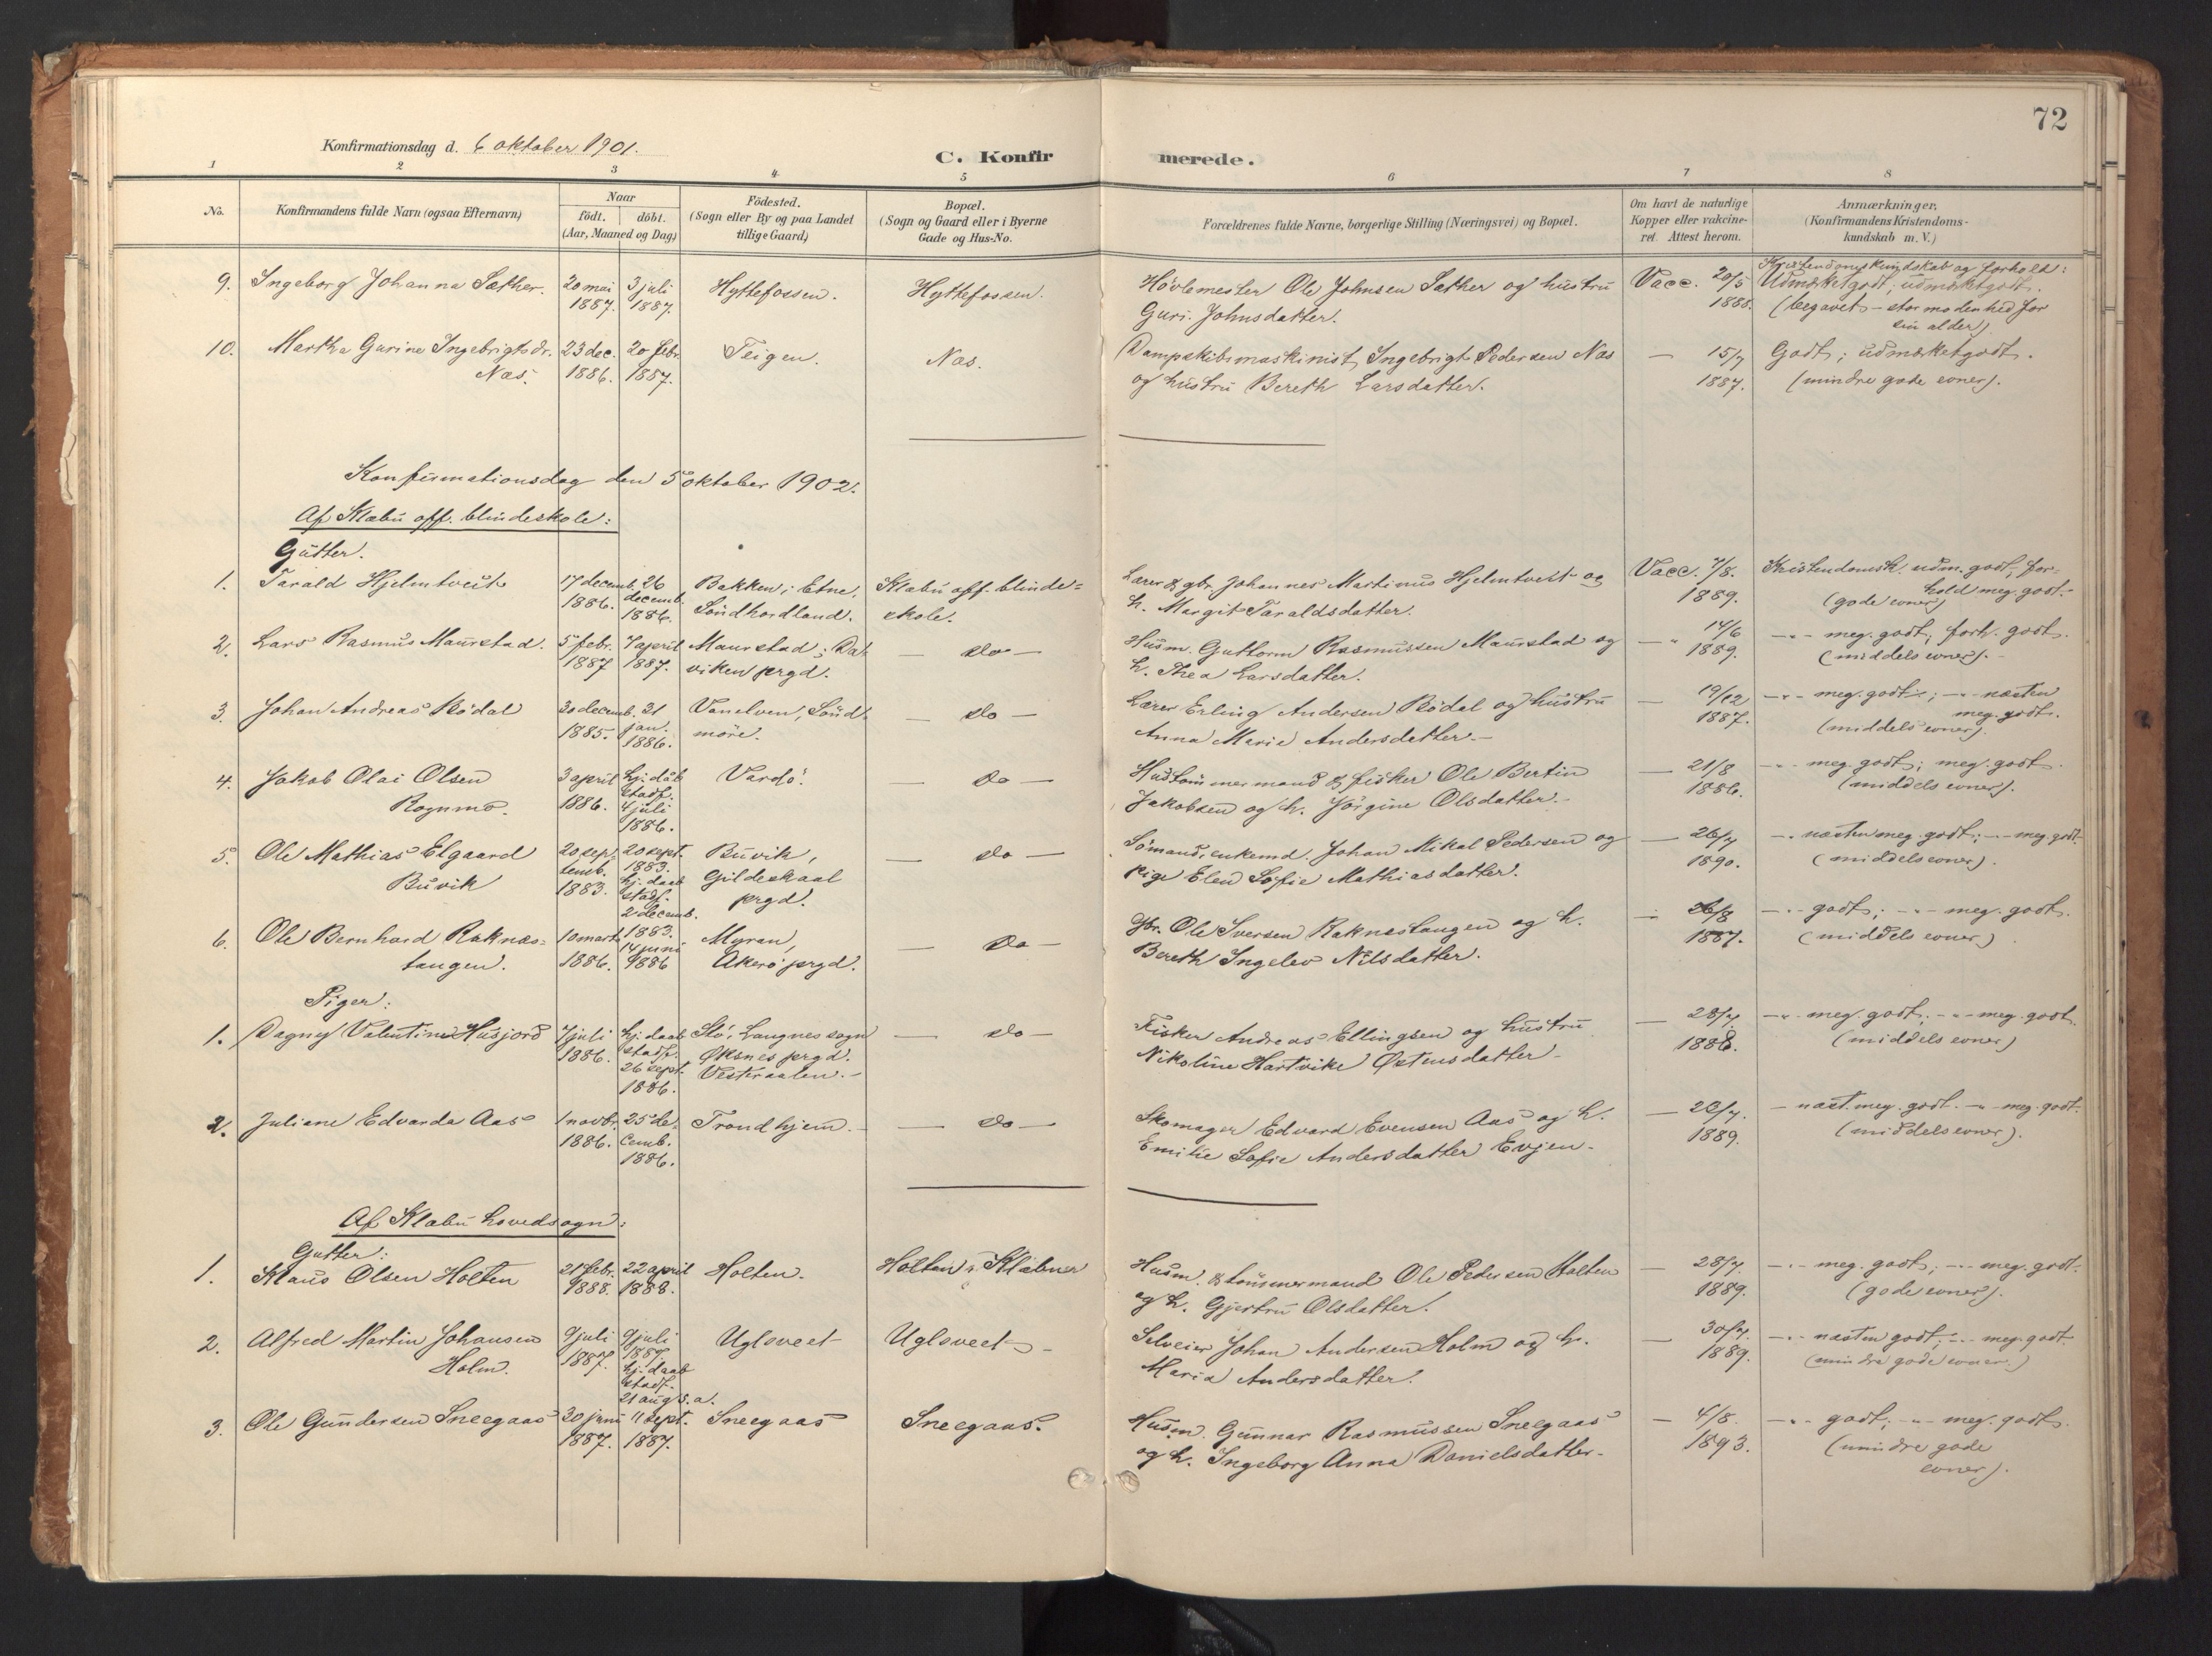 72
Konfirmationsdag d. 6 oktober 1901.
C. Konfirmerede.
1 2 3 4 5 6 7 8
No.
Konfirmandens fulde Navn (ogsaa Efternavn)
Naar
födt. döbt.
(Aar, Maaned og Dag)
Födested.
(Sogn eller By og paa Landet
tillige Gaard)
Bopæl.
(Sogn og Gaard eller i Byerne
Gade og Hus-No.
Forældrenes fulde Navne, borgerlige Stilling (Næringsvei) og Bopæl.
Om havt de naturlige
Kopper eller vakcine-
ret. Attest herom.
Anmærkninger.
(Konfirmandens Kristendoms-
kundskab m. V.)
9. Ingeborg Johanna Sæther. 20 mai 3 juli Hyttefossen. Hyttefossen. Høvlemester Ole Johnsen Sæther og hustru Vacc. 20/5 Kristendomskundskab og forhold:
1887. 1887. Guri Johnsdatter. 1888. Udmærketgodt; udmærketgodt.
(begavet – stor modenhed for
sin alder).
10. Martha Gurine Ingebrigtsdr. 23 dec. 20 febr. Teigen. Næs. Dampskibsmaskinist Ingebrigt Pedersen Næs — 15/7 Godt; udmærketgodt.
Næs. 1886. 1887. og hustru Bereth Larsdatter. 1887. (mindre gode evner).
Konfirmationsdag den 5 oktober 1902.
Af Klæbu off. blindeskole:
Gutter.
1. Tarald Hjelmtveit 17 decemb. 26 Bakken i Etne, Klæbu off. blinde- Lærer & gbr. Johannes Martinus Hjelmtveit og Vacc. 7/8. Kristendomsk. udm. godt; for-
1886. decemb. 1886. Söndhordland. skole. h. Margit Taraldsdatter. 1889. hold meg. godt.
(gode evner)
2. Lars Rasmus Maurstad. 5 febr. 7 april Maurstad i Da- — do — Husm. Guttorm Rasmussen Maurstad og — " 14/6 — " — meg. godt; forh. godt.
1887 1887. viken prgd. h. Thea Larsdatter. 1889. (middels evner).
3. Johan Andreas Rödal 30 decemb. 31 Vanelven, Sönd- — do — Lærer Erling Andersen Rödal og hustru — 19/12 — " — meg. godt; — " — næsten
1885. jan. 1886. möre. Anna Marie Andersdatter. 1887. meg. godt.
(middels evner).
4. Jakob Olai Olsen 3 april hj. dåb Vardö. — do — Hustömmermand & fisker Ole Bertin — 21/8 — " — meg. godt; meg. godt.
Rognmo. 1886. stadf. 4 juli 1886. Jakobsen og h. Jörgine Olsdatter. 1886. (middels evner).
5. Ole Mathias Elgaard 20 sep- 20 sept. Buvik, — do — Sömand, enkemd. Johan Mikal Pedersen og — 26/7 — " — næsten meg. godt; — " — meg. godt.
Buvik temb. 1883. 1883. hj. daab stadf. 2 decemb. 1883. Gildeskaal prgd. pige Elen Sofie Mathiasdatter. 1890. (middels evner).
6. Ole Bernhard Raknes- 10 mart 14 juni Myran, — do — Gbr. Ole Iversen Raknestangen og h. 26/8 — " — godt; — " — meg. godt.
tangen. 1886. 1886 Akerö prgd. Bereth Ingelev Nilsdatter. 1887. (middels evner)
Piger:
1. Dagny Valentine Husjord 7 juli hj. daab Stö, Langnes sogn — do — Fisker Andreas Ellingsen og hustru — 28/7 — " — meg. godt; — " — meg. godt.
1886. stadf. 26 sept. 1886. Øksnes prgd. Vesteraalen. Nikoline Hartvike Østensdatter 1888. (middels evner)
2. Juliane Edvarda Aas 1 novbr. 25 de- Trondhjem. — do — Skomager Edvard Evensen Aas og h. — 20/7. — næst. meg. godt. — " — meg. godt.
1886. cemb. 1886. Emilie Sofie Andersdatter Evjen. 1889. (middels evner).
Af Klæbu hovedsogn:
Gutter:
1. Klaus Olsen Holten 21 febr. 22 april Holten. Holten i Klæbu Husm. & tömmermand Ole Pedersen Holten — 28/7. — " — meg. godt; — " — meg. godt.
1888. 1888. og h. Gjertru Olsdatter. 1889. (gode evner).
2. Alfred Martin Johansen 9 juli 9 juli Uglsveet Uglsveet Selveier Johan Andersen Holm og h. — 30/7. — " — næsten godt; — " — meg. godt
Holm. 1887. 1887. hj. daab stadf. 21 aug. s. a. Maria Andersdatter. 1889. (mindre gode evner.)
3. Ole Gundersen Sneegaas 30 juni 11 sept. Sneegaas Sneegaas. Husm. Gunnar Rasmussen Sneegaas — 4/8. — " — godt; — " — meg. godt.
1887. 1887. og h. Ingeborg Anna Danielsdatter. 1893. (mindre gode
evner).